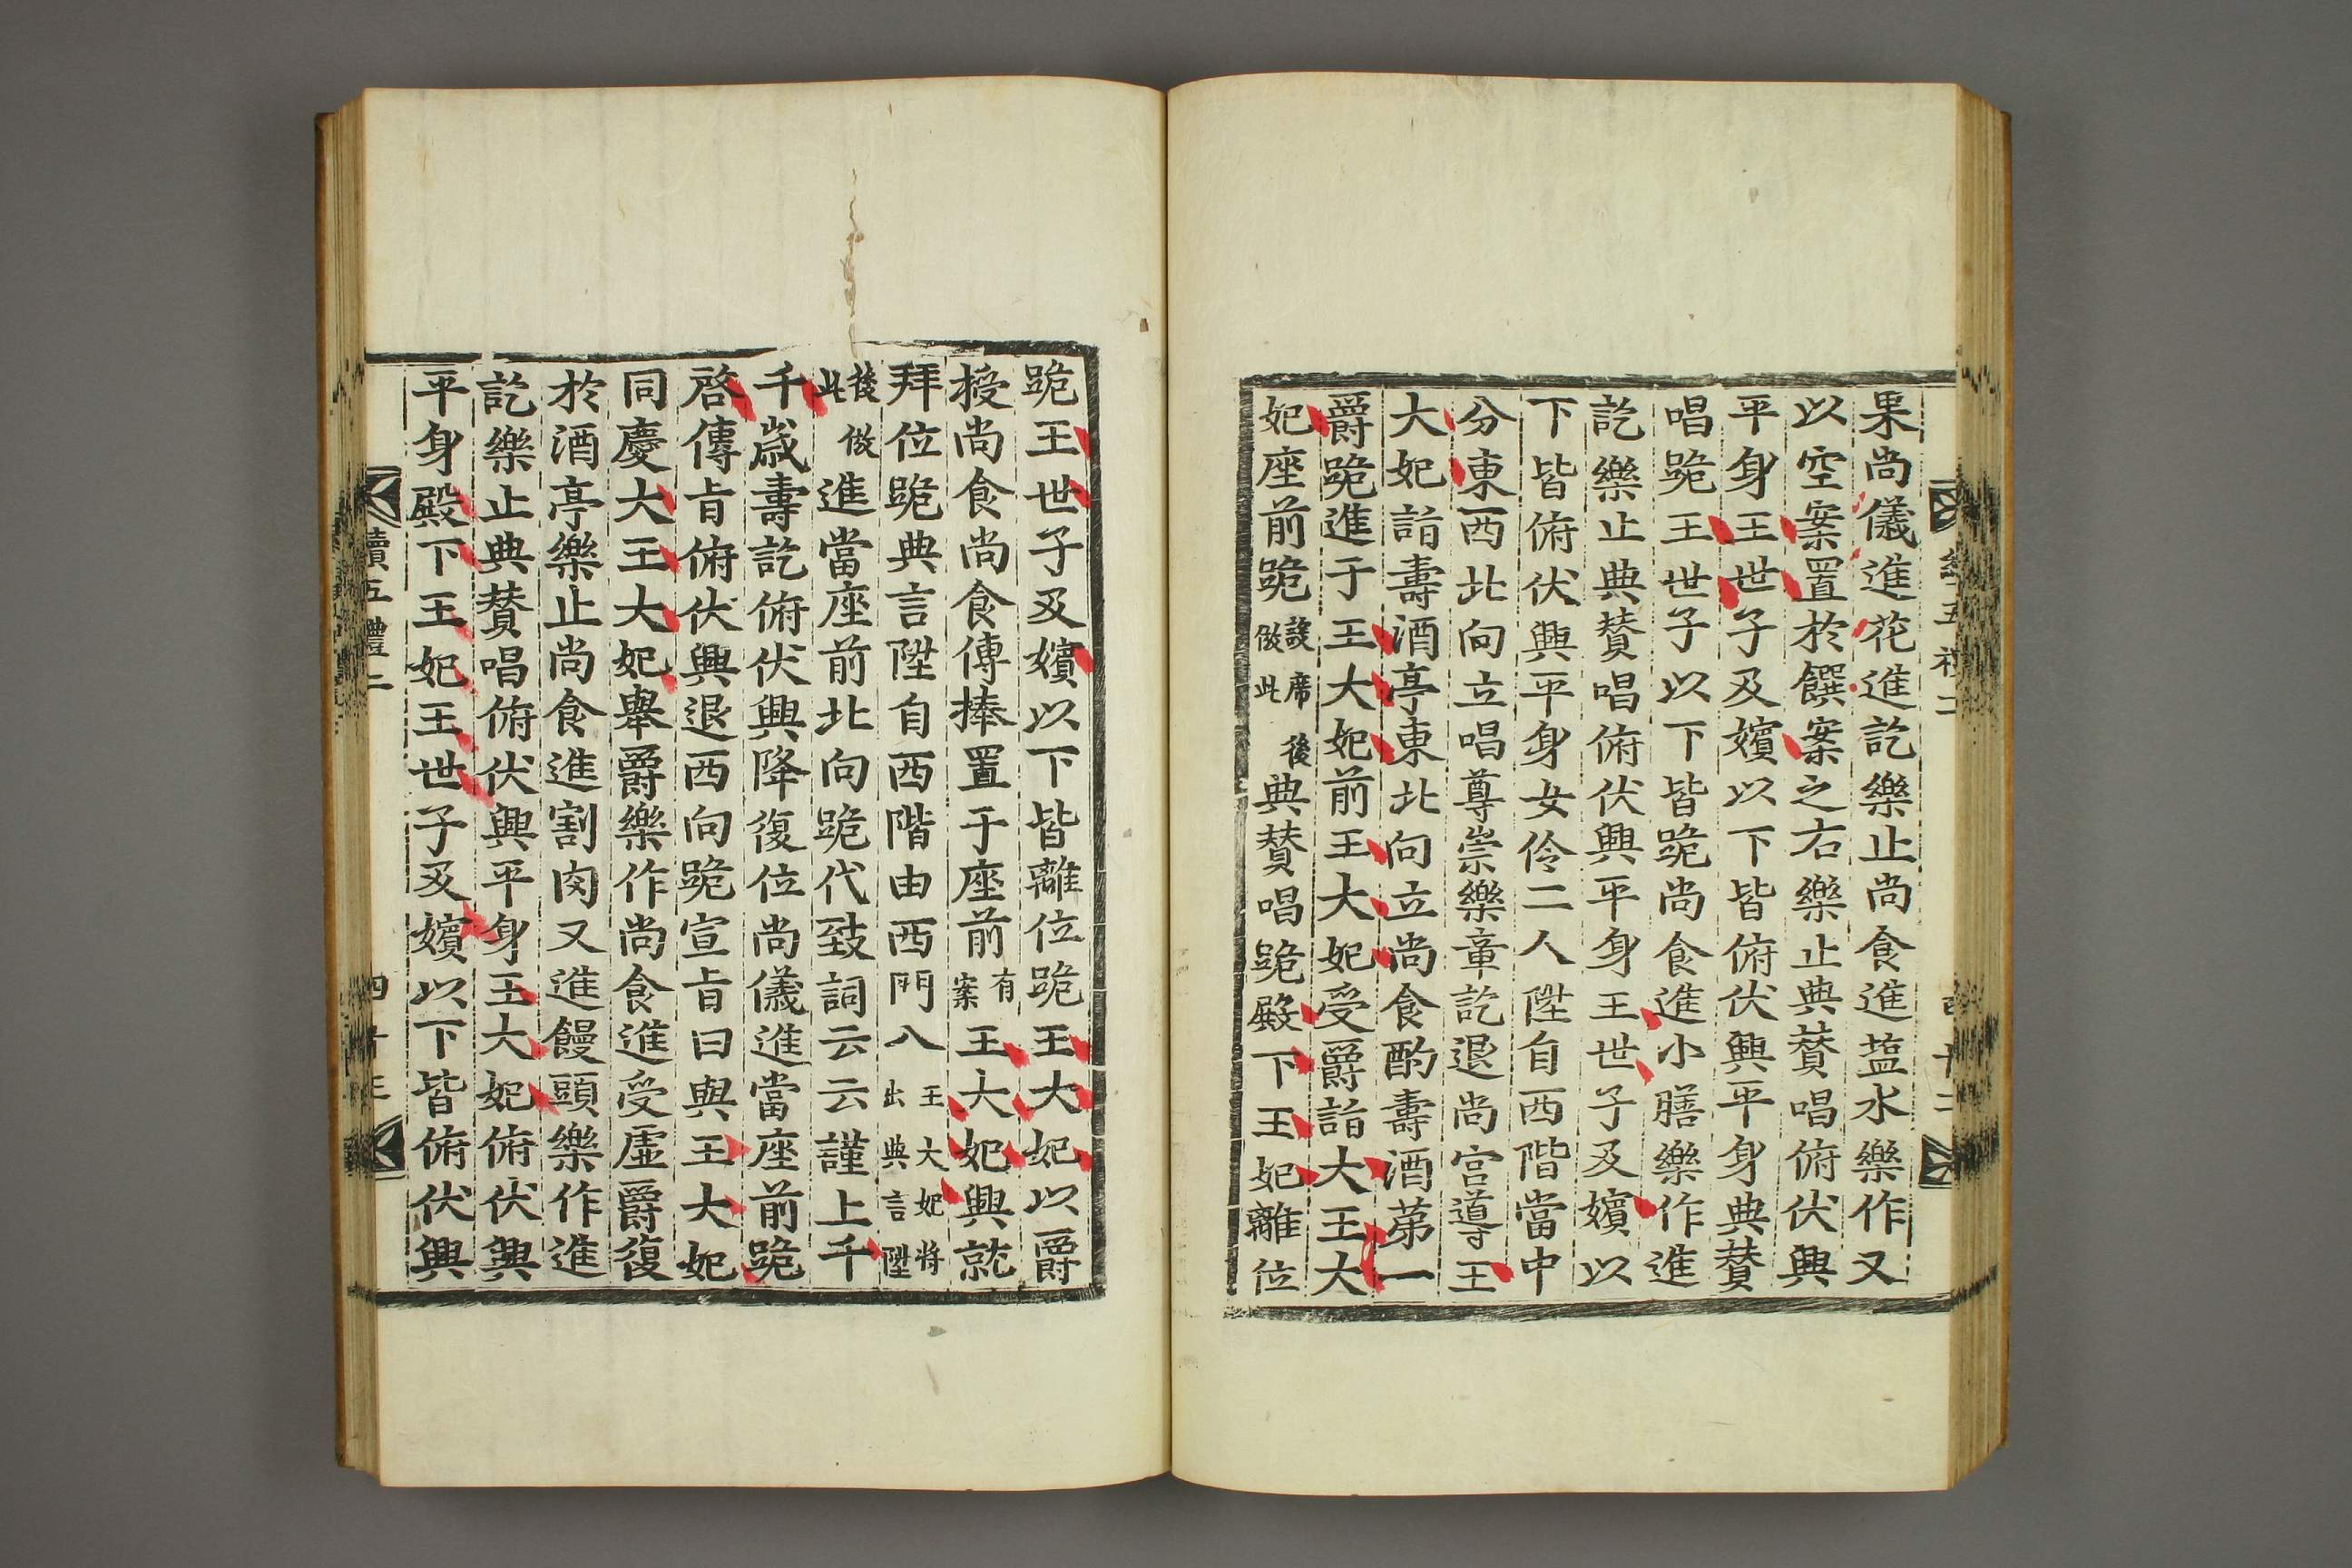 果尚儀進花進訖樂止尚食進塩水樂作又
以空案置於饌案之右樂止典賛唱俯伏興
平身王世子及嬪以下皆俯伏興平身典賛
唱跪王世子以下皆跪尚食進小膳樂作進
訖樂止典賛唱俯伏興平身王世子及嬪以
下皆俯伏興平身女伶二人陞自西階當中
分東西北向立唱尊崇樂章訖退尚宮導王
大妃詣壽酒亭東北向立尚食酌壽酒第一
爵跪進于王大妃前王大妃受爵詣大王大
妃座前跪設席後倣此典賛唱跪殿下王妃離位
跪王世子及嬪以下皆離位跪王大妃以爵
授尚食尚食傳捧置于座前有案王大妃興就
拜位跪典言陞自西階由西門八王大妃將出典言陞
後倣此進當座前北向跪代致詞云云謹上千
千歲壽訖俯伏興降復位尚儀進當座前跪
啓傳旨俯伏興退西向跪宣旨曰與王大妃
同慶大王大妃舉爵樂作尚食進受虛爵復
於酒亭樂止尚食進割肉又進饅頭樂作進
訖樂止典賛唱俯伏興平身王大妃俯伏興
平身殿下王妃王世子及嬪以下皆俯伏興
續五禮二
四十三